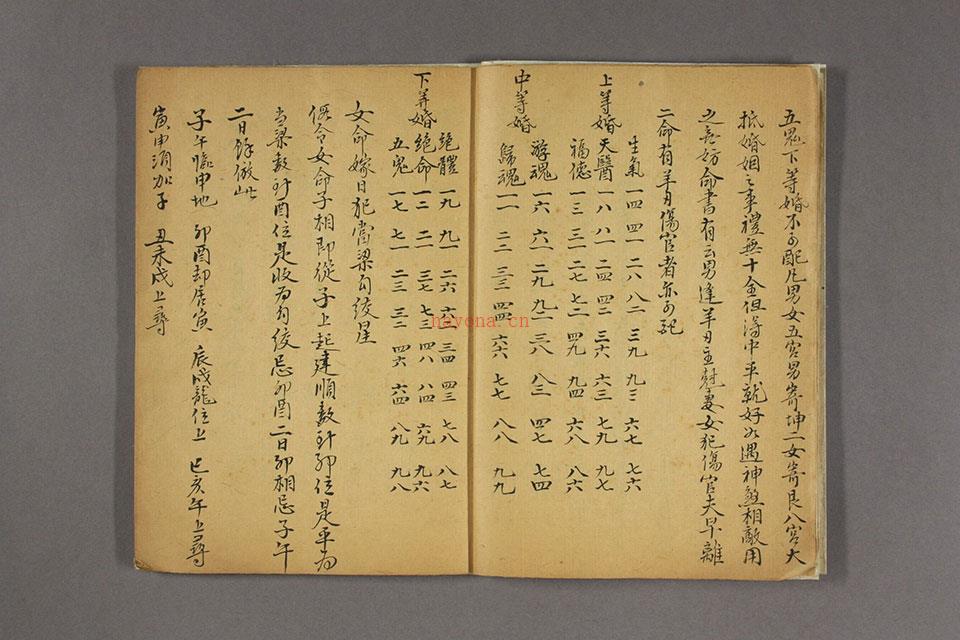 五鬼下等婚不可配凡男女五宮男寄坤二女寄艮八宮大
抵婚姻之事禮無十全但得中平就好如遇神煞相敵用
之無妨命書有云男逢羊刃主尅妻女犯傷官夫早離
二命有羊刃傷官者亦可配
上等婚
生氣 一四 四一 二八 八二 三九 九三 六七 七六
天醫 一八 八一 二四 四二 三六 六三 七九 九七
福德 一三 三一 二七 七二 四九 九四 六八 八六
中等婚
遊魂 一六 六一 二九 九二 三八 八三 四七 七四
歸魂 一一 二二 三三 四四 六六 七七 八八 九九
下等婚
絕體 一九 九一 二六 六二 三四 四三 七八 八七
絕命 一二 二一 三七 七三 四八 八四 六九 九六
五鬼 一七 七一 二三 三二 四六 六四 八九 九八
女命嫁日犯當梁勾絞星
假令女命子相即從子上起建順數到卯位是平為
當梁數到酉位是收為勾絞忌卯酉二日卯相忌子午
二日餘倣此
子午臨申地 卯酉却居寅 辰戌龍位上 巳亥午上尋
寅申消加子 丑未戌上尋
hayona.cn